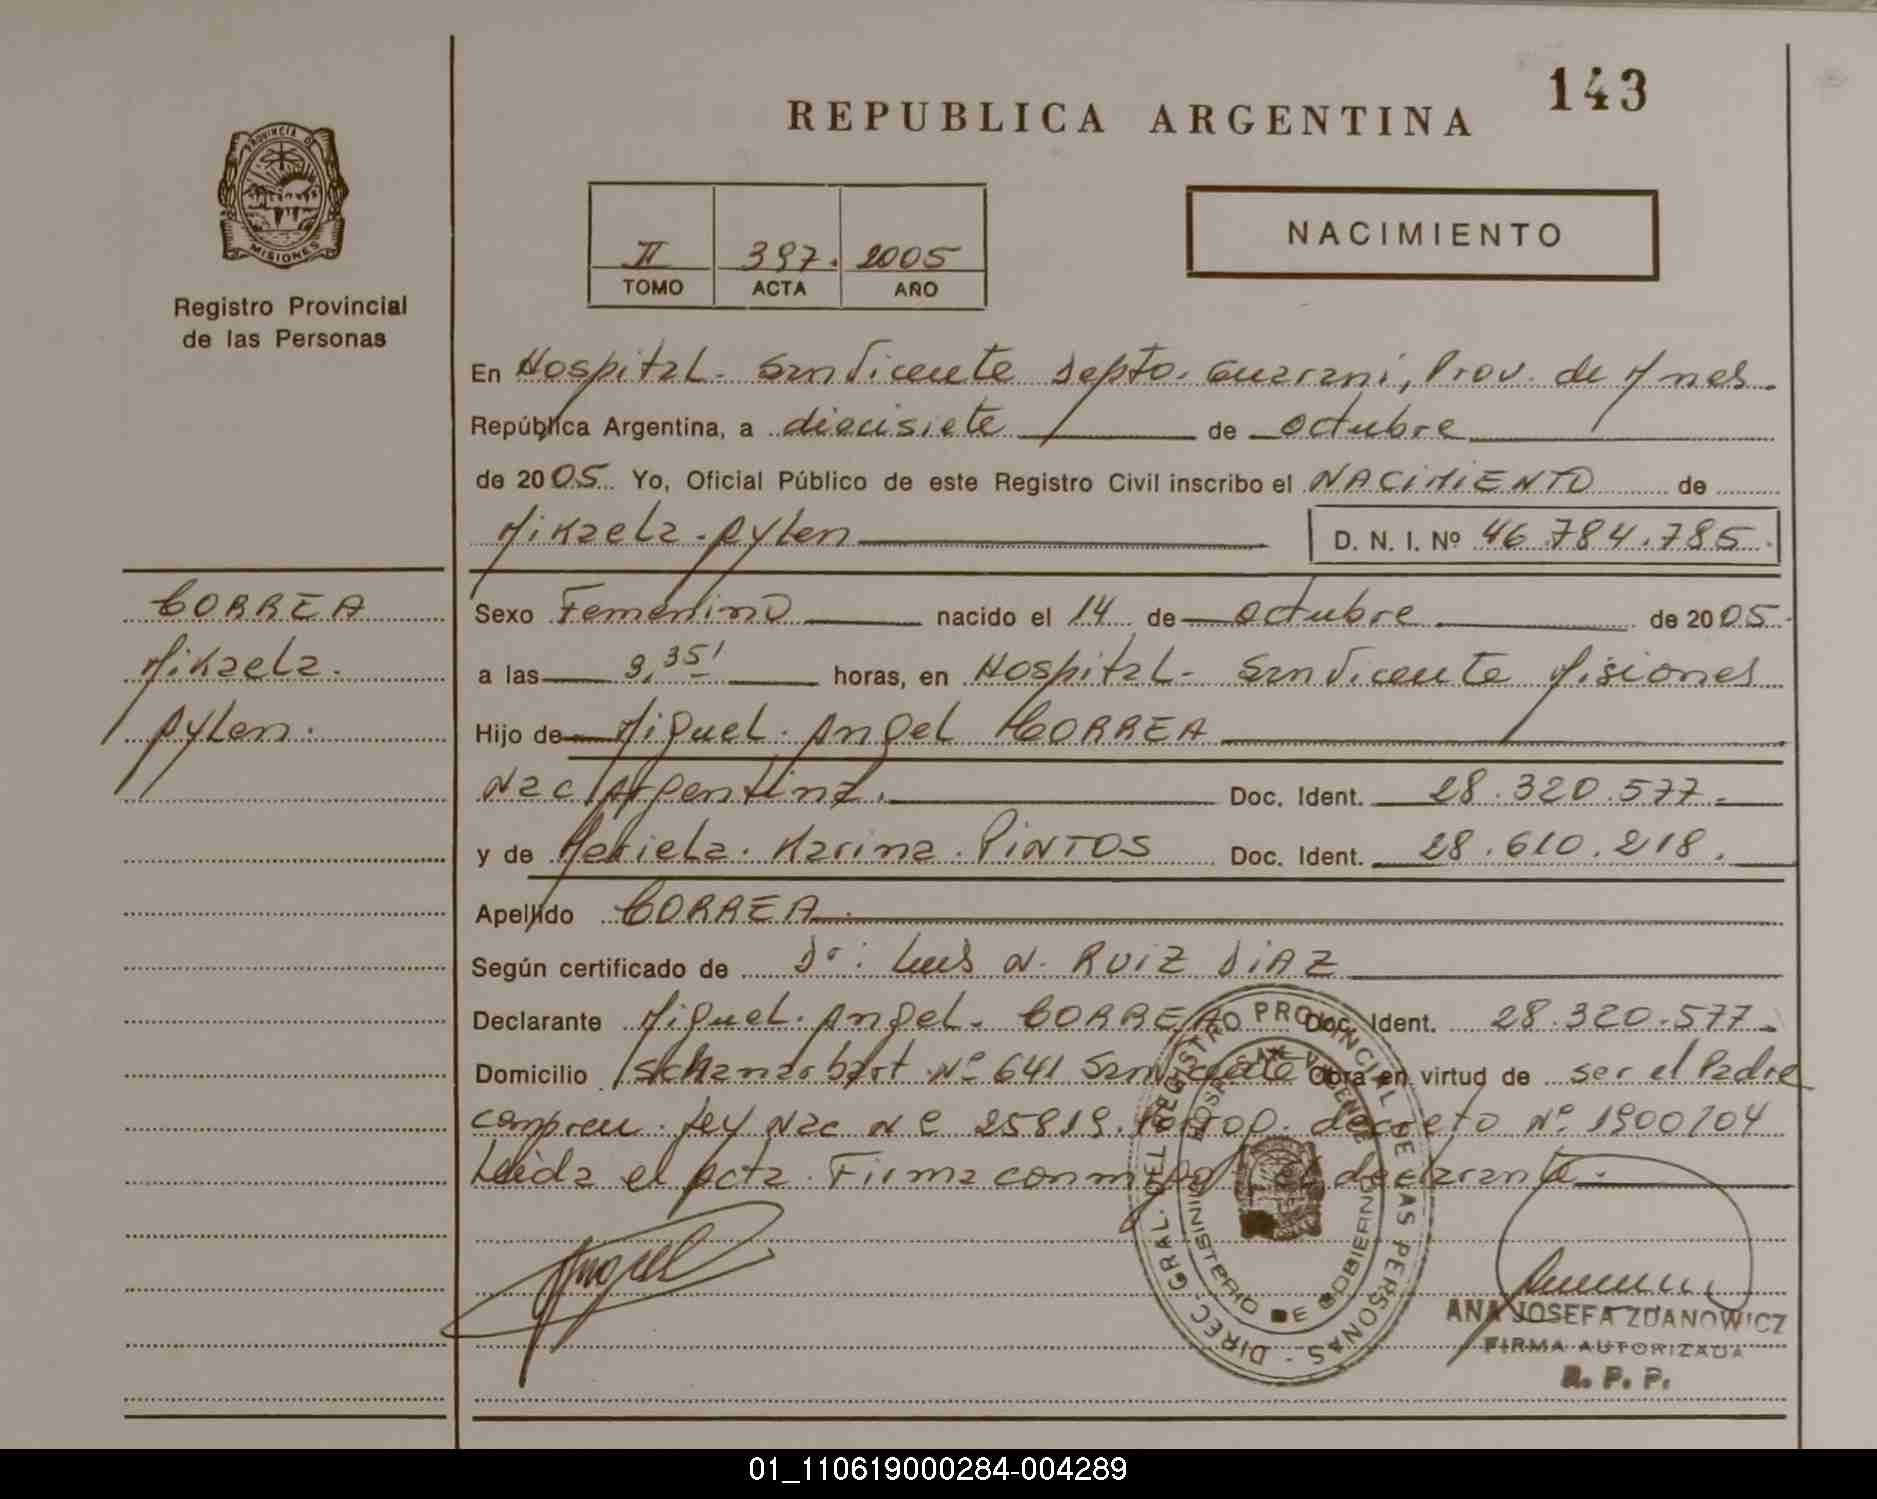 143
REPUBLICA ARGENTINA
PROVINCIA DE
MISIONES
Registro Provincial
de las Personas
II 397. 2005
TOMO ACTA AÑO
NACIMIENTO
En Hospital. San Vicente Depto. Guarani, Prov. de Mnes.
República Argentina, a diecisiete de octubre
de 2005 Yo, Oficial Público de este Registro Civil inscribo el NACIMIENTO de
Mikaela. Aylen D. N. I. Nº 46.784.785.
CORREA
Mikaela.
Aylen.
Sexo Femenino nacido el 14 de octubre de 2005
a las 9,35' horas, en Hospital. San Vicente Misiones
Hijo de Miguel. Angel CORREA
Nac Argentina. Doc. Ident. 28.320.577.
y de Mariela. Karina. PINTOS Doc. Ident. 28.610.218.
Apellido CORREA.
Según certificado de Dr: Luis N. RUIZ DIAZ
Declarante Miguel. Angel. CORREA Doc. Ident. 28.320.577.
Domicilio Nº 641 San Vicente Obra en virtud de ser el Padre
Ley Nac Nº 25819. decreto Nº 1900/04
Leida el acta. Firma conmigo el declarante.
DIREC. GRAL. DEL REGISTRO PROVINCIAL DE LAS PERSONAS -
HOSP. SAN VICENTE
MINISTERIO DE GOBIERNO
ANA JOSEFA ZDANOWICZ
FIRMA AUTORIZADA
R. P. P.
01_110619000284-004289